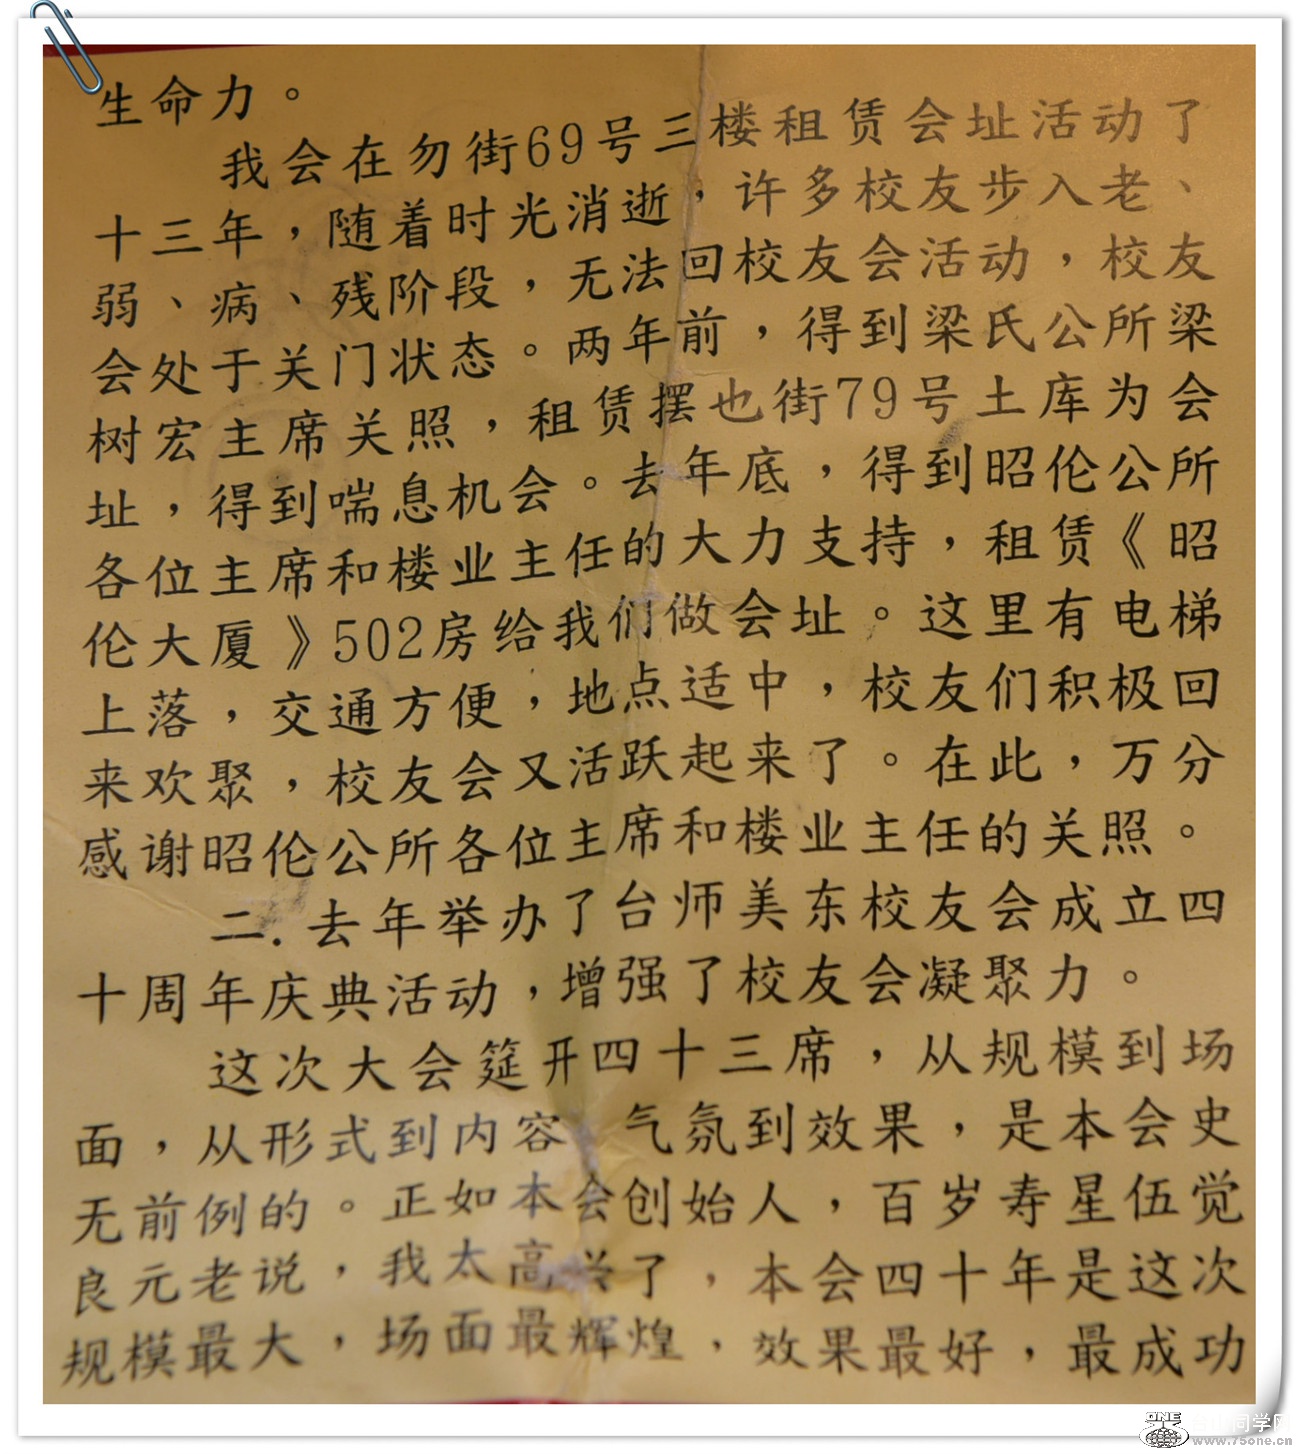 生命力。
我会在勿街69号三楼租赁会址活动了
十三年，随着时光消逝，许多校友步入老、
弱、病、残阶段，无法回校友会活动，校友
会处于关门状态。两年前，得到梁氏公所梁
树宏主席关照，租赁摆也街79号土库为会
址，得到喘息机会。去年底，得到昭伦公所
各位主席和楼业主任的大力支持，租赁《昭
伦大厦》502房给我们做会址。这里有电梯
上落，交通方便，地点适中，校友们积极回
来欢聚，校友会又活跃起来了。在此，万分
感谢昭伦公所各位主席和楼业主任的关照。
二.去年举办了台师美东校友会成立四
十周年庆典活动，增强了校友会凝聚力。
这次大会筵开四十三席，从规模到场
面，从形式到内容 气氛到效果，是本会史
无前例的。正如本会创始人，百岁寿星伍觉
良元老说，我太高兴了，本会四十年是这次
规模最大，场面最辉煌，效果最好，最成功
ONE 同学网
www.75one.cn